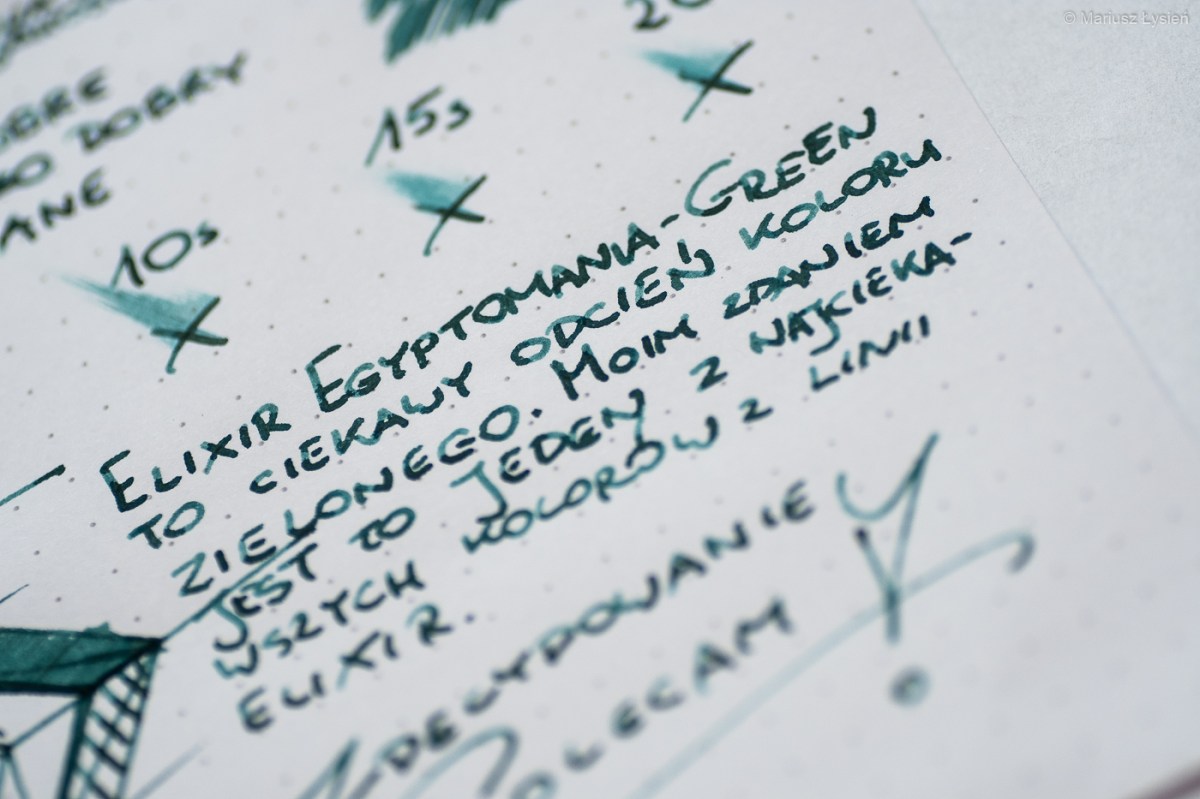 © Mariusz Łysień
DOBRY
15s
10s
ELIXIR EGYPTOMANIA-GREEN
TO CIEKAWY ODCIEŃ KOLORU
ZIELONEGO. MOIM ZDANIEM
JEST TO JEDEN Z NAJCIEKA-
WSZYCH KOLORÓW Z LINII
ELIXIR.
ZDECYDOWANIE
POLECAM